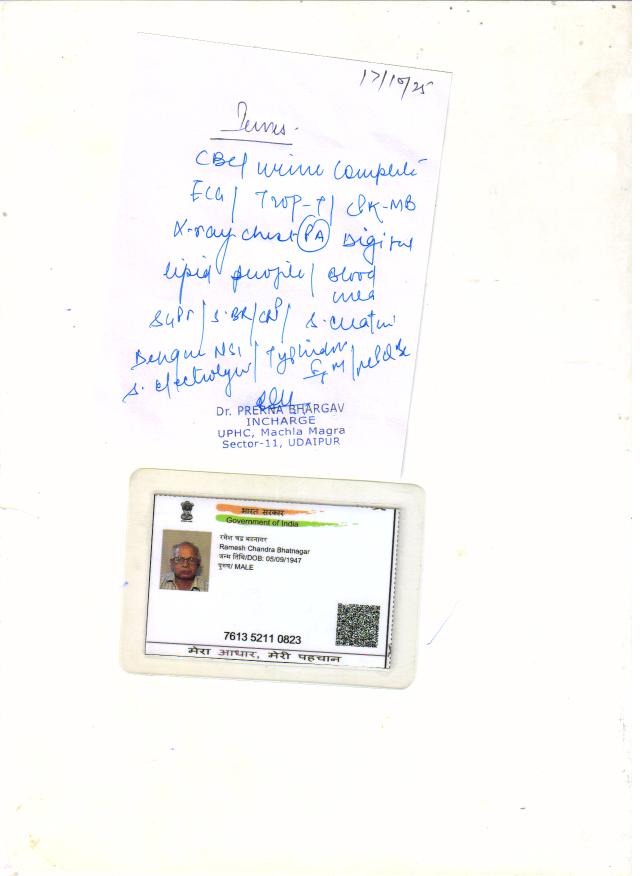 17/10/25
CBC/ urine Complete
ECG/ Trop-T/ CK-MB
X-ray chest PA Digital
lipid profile/ Blood
urea
SGPT/ S.BR/CRP/ S. creatini
Dengue NS1/ Typhidot
S. electrolyte/ IgM/
Dr. PRERNA BHARGAV
INCHARGE
UPHC, Machla Magra
Sector-11, UDAIPUR
भारत सरकार
Government of India
रमेश चंद्र भटनागर
Ramesh Chandra Bhatnagar
जन्म तिथि/DOB: 05/09/1947
पुरुष/ MALE
7613 5211 0823
मेरा आधार, मेरी पहचान